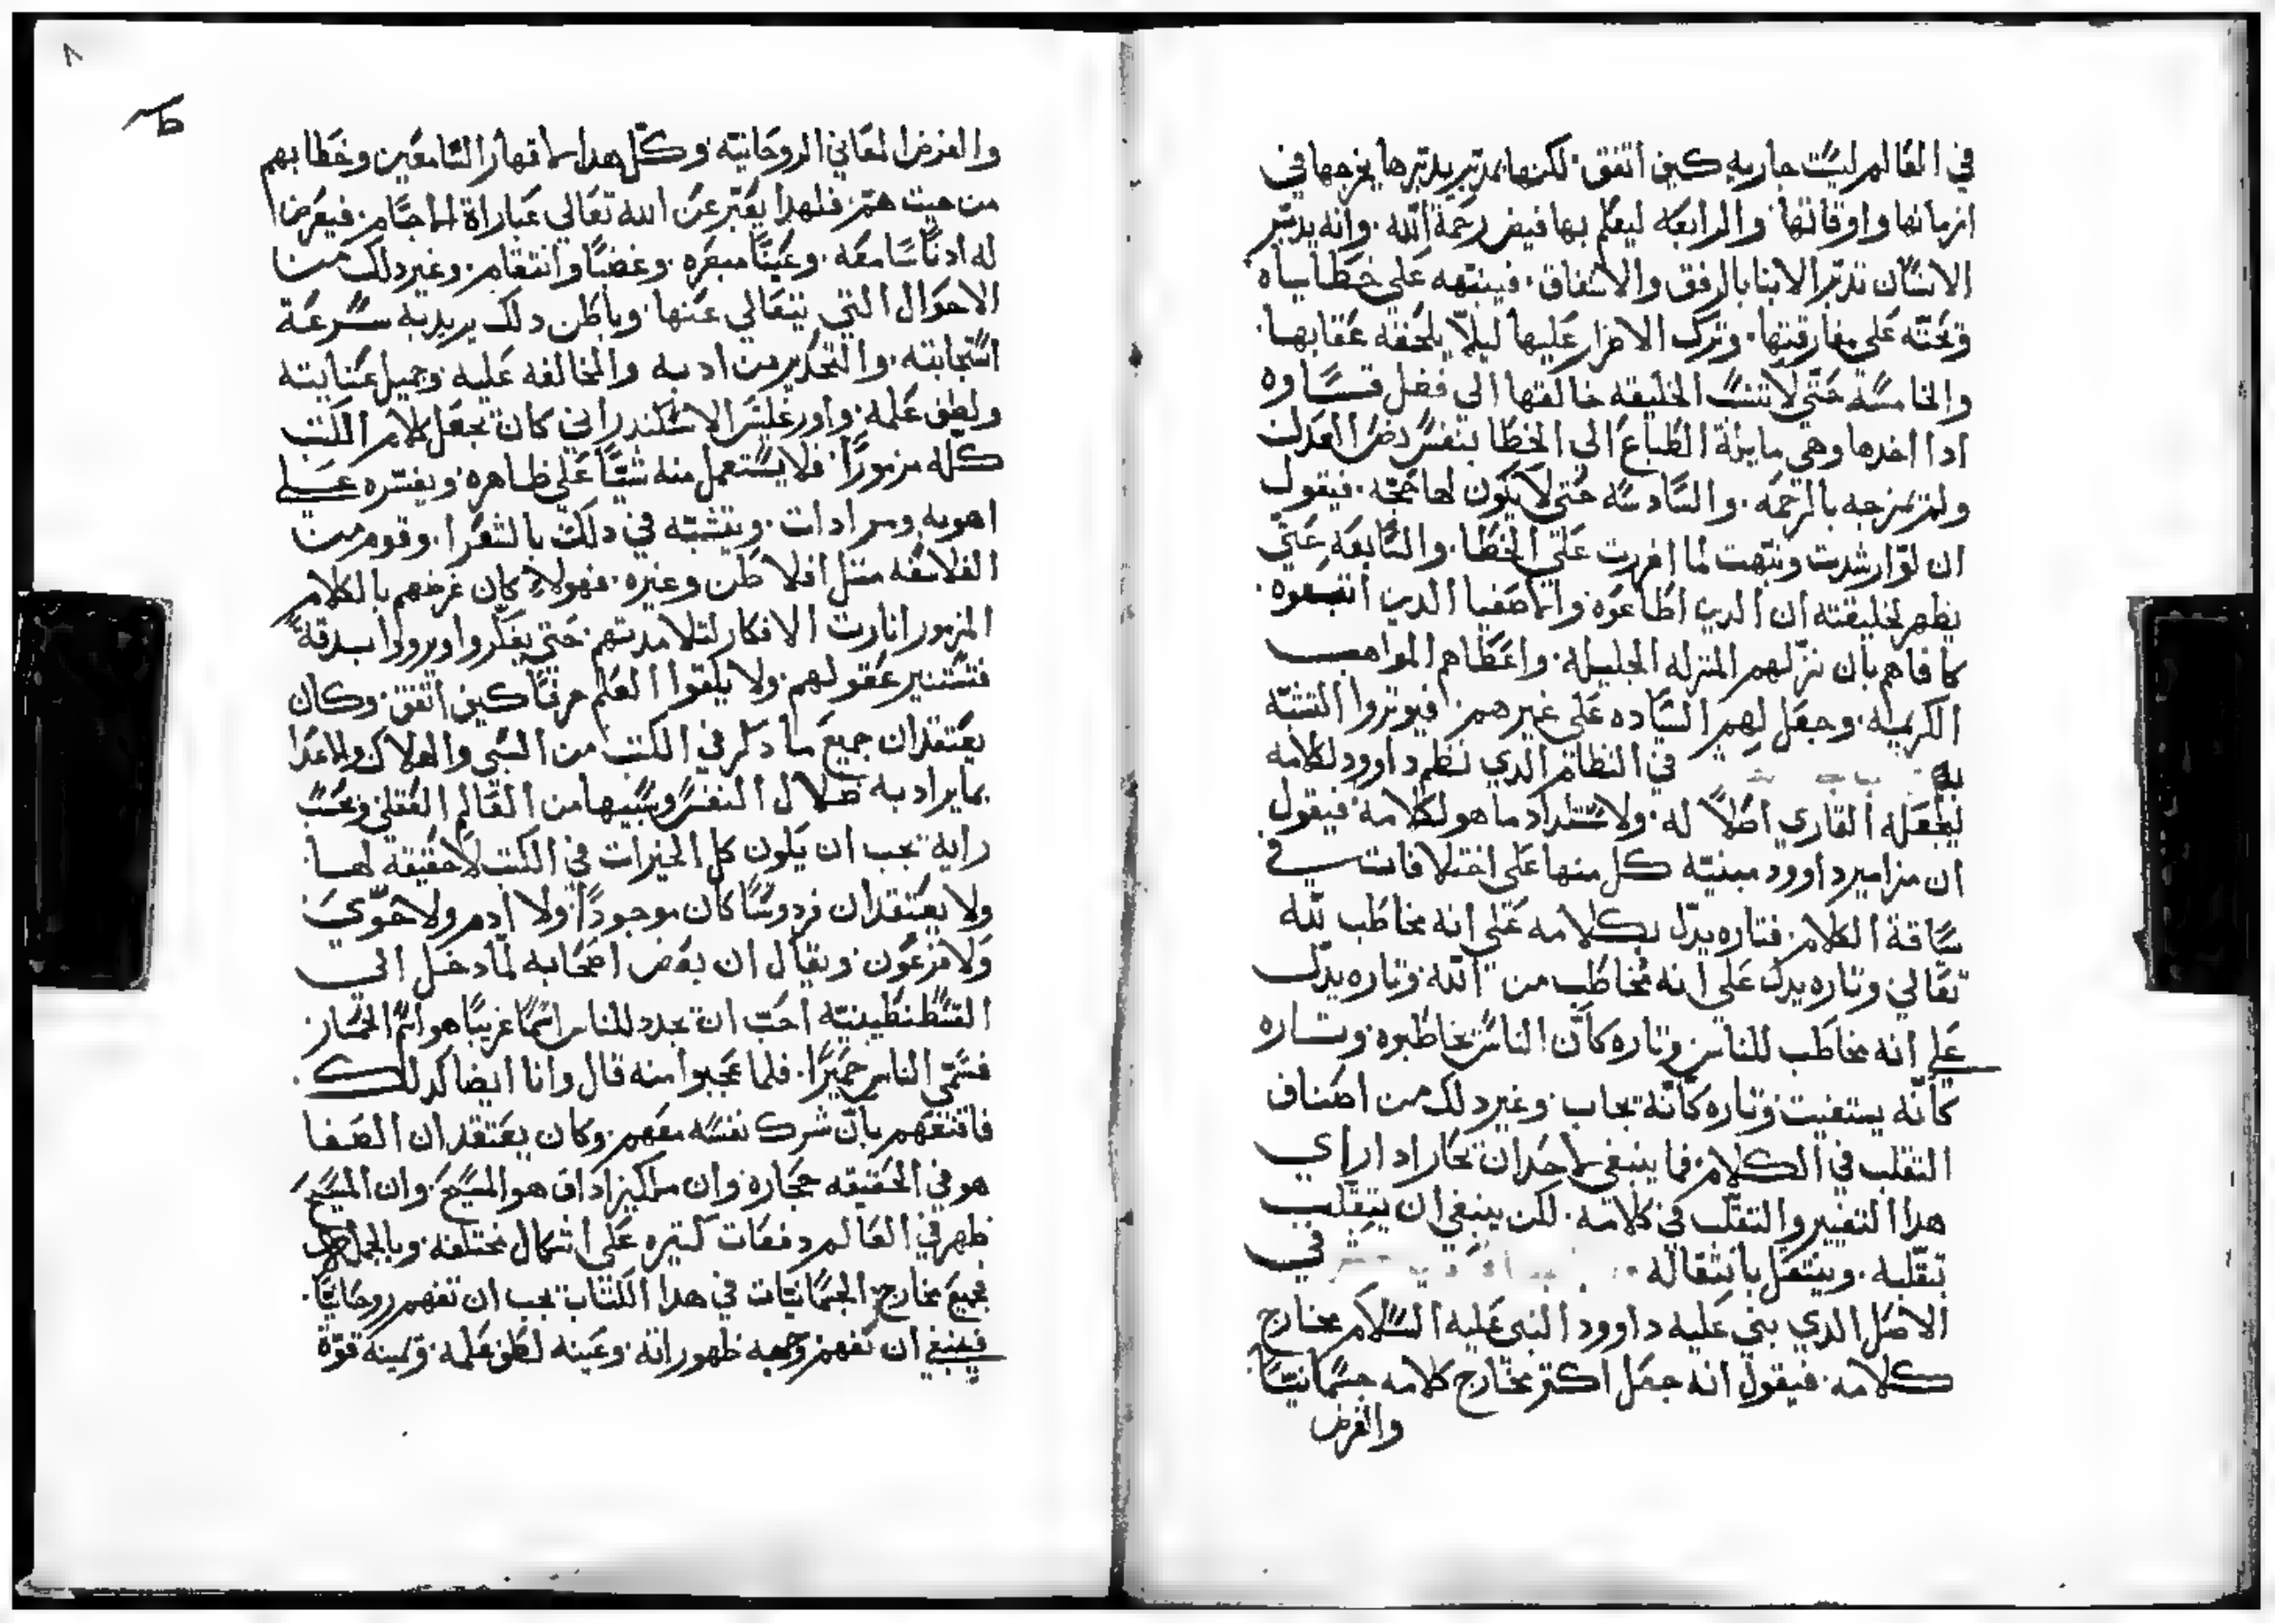 في العالم ليست جاريه كيف اتفق. لكنها بمدبر يدبرها يخرجها في
ازمانها واوقاتها. والرابعه ليعلم بها فيض رحمة الله. وانه يدبر
الانسان تدبر الابنا بالرفق والاشفاق. فينبهه على خطاياه
وتحته على مفارقتها. وترك الاضرار عليها ليلا يلحقه عقابها.
والخامسه حتى لا تنسب الخليقه خالقها الي فضل قساوه
ادا اخدها وهي مايلة الطباع الى الخطا بنفس دض العدل
ولم تمزجه بالرحمه. والسادسه حتى لا يكون لها حجه. فيقول
ان لو ارشدت ونبهت لما اضررت علي الخطا. والسابعه حتي
يظهر لخليقته ان الدين اطاعوه والاصفيا الدين اتبعوه.
كافاهم بان نزلهم المنزله الجليله. واعطاهم المواهب
الكريمه. وجعل لهم الساده على غيرهم. فيوتروا التشبه
بهم في النظام الدي نظم داوود لكلامه
ليجعله القاري اصلا له. ولاستطراد ما هو لكلامه. فيقول
ان مزامير داوود مبنيه كل منها على اختلافات في
ساقة الكلام. فتاره يدل بكلامه على انه مخاطب لله
تعالي وتاره يدل على انه مخاطب من الله. وتاره يدل
على انه مخاطب للناس. وتاره كان الناس تخاطبوه. وتاره
كانه يستغيت. وتاره كانه يجاب. وغير دلك من اصناف
التقلب في الكلام. فما ينبغي لاحد ان تحار ادا راي
هدا التغيير والتقلب في كلامه. لكن ينبغي ان يتقلب
بتقلبه. وينتقل بانتقاله في
الاصل الدي بني عليه داوود النبى عليه السلام مخارج
كلامه. فيقول انه جعل اكتر مخارج كلامه جسمانيا
والغرض
٨
والغرض المعاني الروحانيه. وكل هدا لاقهار السامعين وخطابهم
من حيث هم. فلهدا يعبر عن الله تعالي عباراة الاجسام. فيعرض
له ادنا سامعه. وعينا مبصره. وغضبا وانتقام. وغير دلك من
الاحوال التي يتعالي عنها. وباطن دلك يريد به سرعة
استجابته. والتحدير من ادبه والمخالفه عليه. وجميل عنايته
ولطف علمه. واورغليس الاسكندراني كان تجعل كلام الكتب
كله مرموزا. فلا يستعمل منه شيا على ظاهره. ويفسره على
اهويه ومرادات. ويتشبه في دلك بالشعرا. وقوم من
الفلاسفه متل افلاطن وغيره. فهولاء كان غرضهم بالكلام
المرموز انارت الافكار لتلامدتهم. حتى يفكروا ويرووا بدقة
فتستنير عقولهم. ولا يلقوا العلم حرفا كيف اتفق. وكان
يعتقد ان جميع ما دكر في الكتب من السبي والهلاك والاعدا
بما يراد به ضلال النفس وسبيها من العالم العقلي. وبحسب
رايه يجب ان يكون كل الخيرات في الكتب لا حقيقة لها.
ولا يعتقد ان فردوسا كان موجودا. ولا ادم ولا حوي
ولا فرعون. ويقال ان بعض اصحابه لما دخل الي
القسطنطينيه احب ان يجدد للناس اسما غريبا هو اسم الحمار
فسمى الناس حميرا. فلما عجبوا منه قال وانا ايضا كدلك.
فاقنعهم بان شرك نفسه معهم. وكان يعتقد ان الصفا
هو في الحقيقه حجاره وان ملاكيزاداق هو المسيح. وان المسيح
ظهر في العالم دفعات كتيره على اشكال مختلفه. وبالجمله
فجميع مخارج الجسمانيات في هدا الكتاب يجب ان تفهم روحانيا.
فينبغي ان تفهم وجهه ظهوراته. وعينه لطف علمه. ويمينه قوة